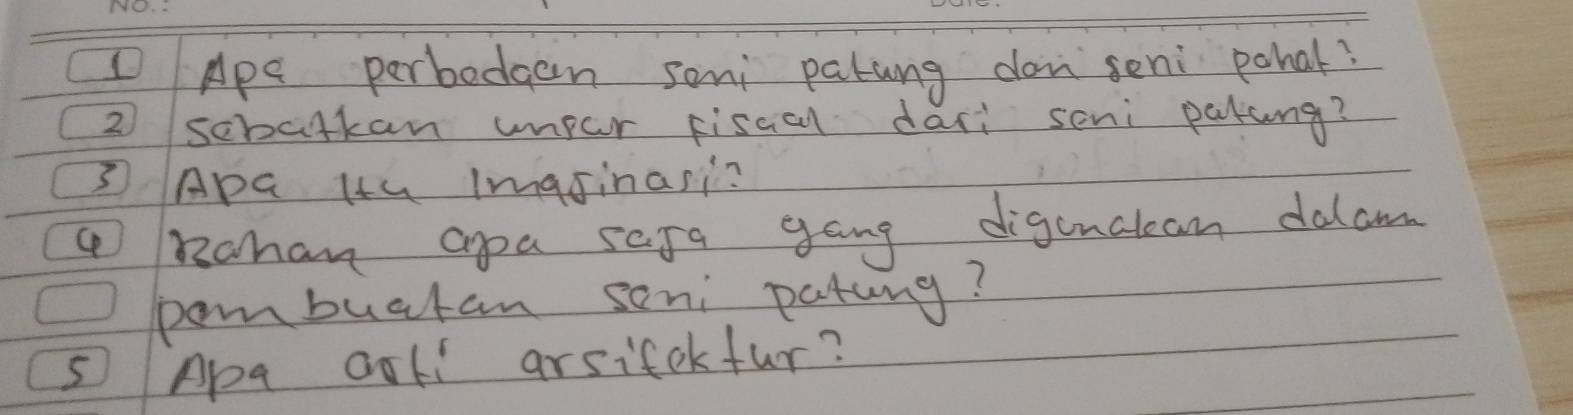 No.:
1 Apa perbedaan seni patung dan seni pahat?
2 Sebatkan unsur fisaal dari seni patung?
3 Apa itu Imajinasi?
4 Bahan apa saja yang digunakan dalam
pembuatan seni patung?
5 Apa arti arsitektur?